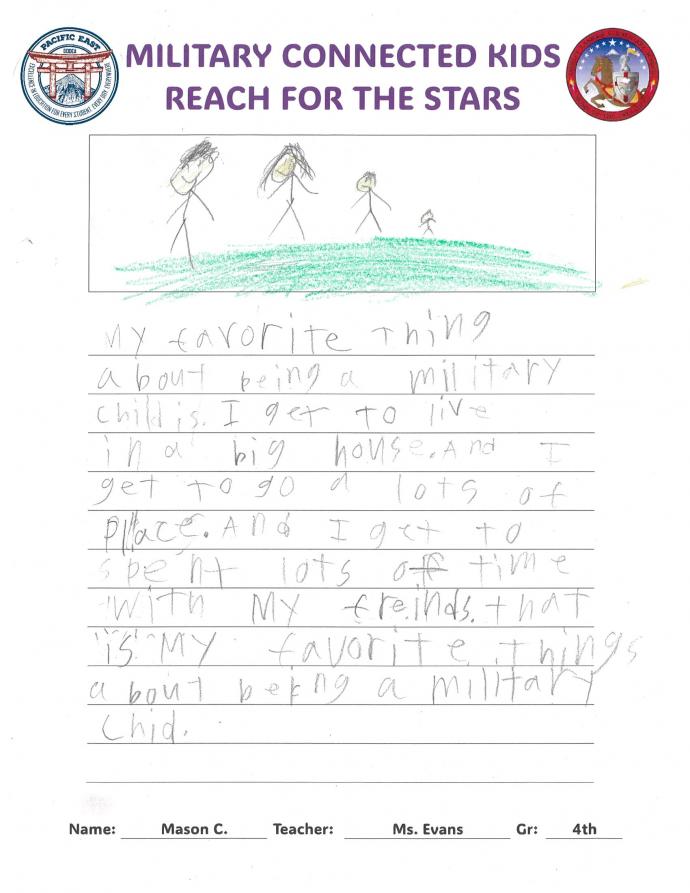 PACIFIC EAST
DODEA
EXCELLENCE IN EDUCATION FOR EVERY STUDENT, EVERY DAY, EVERYWHERE
MILITARY CONNECTED KIDS
REACH FOR THE STARS
My favorite Thing
about being a military
child is. I get To live
in a big house. And I
get to go a lots of
place. And I get to
spent lots off time
with My freinds. that
is My favorite things
about being a military
Chid.
Name: Mason C. Teacher: Ms. Evans Gr: 4th